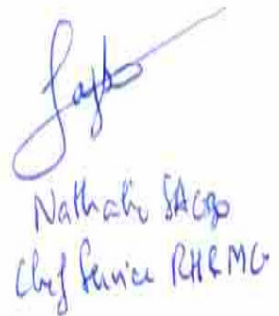 Nathalie SAGBO
Chef Service RH&MG